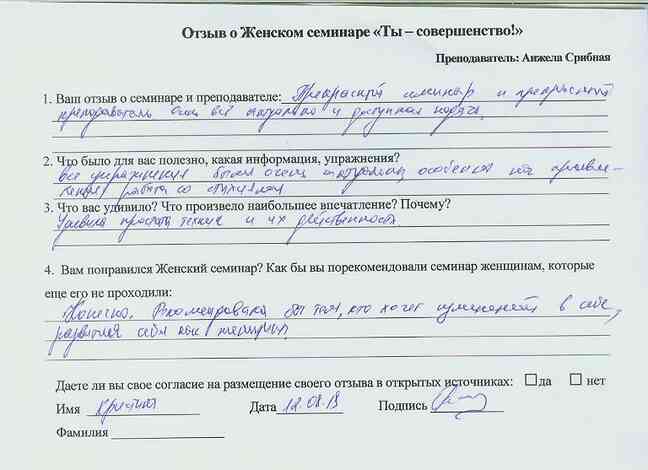 Отзыв о Женском семинаре «Ты – совершенство!»
Преподаватель: Анжела Срибная
1. Ваш отзыв о семинаре и преподавателе: Прекрасный семинар и прекрасный
преподаватель. Очень всё актуально и доступная подача.
2. Что было для вас полезно, какая информация, упражнения?
Все упражнения были очень актуальны, особенно
работа со стихиями
3. Что вас удивило? Что произвело наибольшее впечатление? Почему?
Удивила простота техник и их действенность.
4. Вам понравился Женский семинар? Как бы вы порекомендовали семинар женщинам, которые
еще его не проходили:
Конечно. Рекомендовала бы тем, кто хочет в себе,
развития себя как женщины.
Даете ли вы свое согласие на размещение своего отзыва в открытых источниках: да нет
Имя Кристина Дата 12.08.19 Подпись
Фамилия